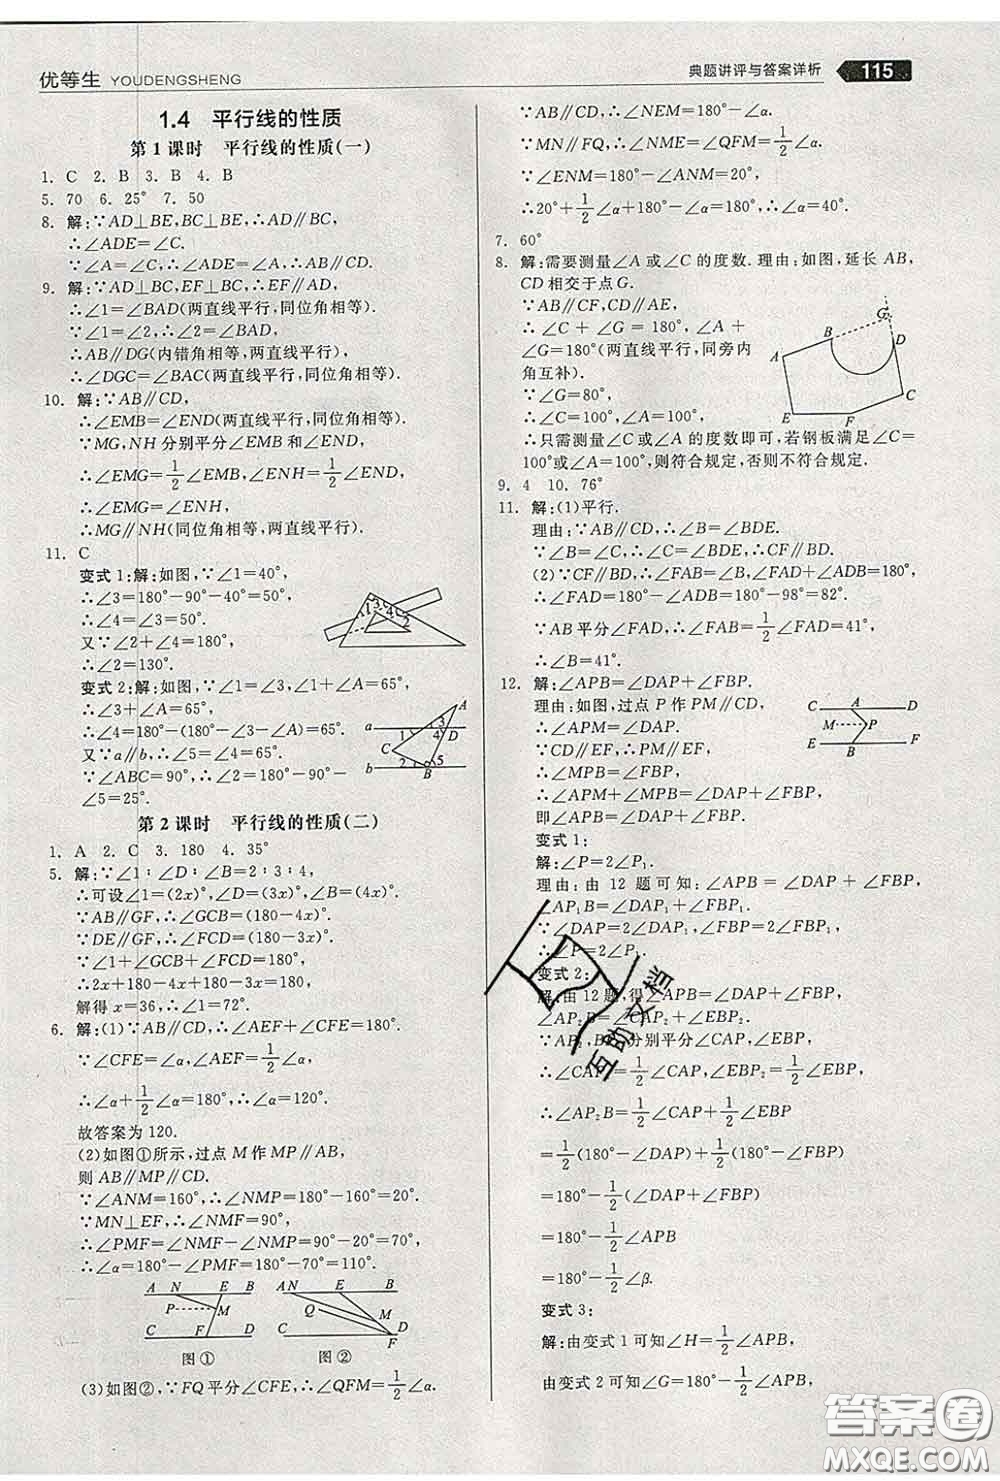 优等生 YOUDENGSHENG
典题讲评与答案详析 115
1.4 平行线的性质
第1课时 平行线的性质(一)
1. C 2. B 3. B 4. B
5. 70 6. 25° 7. 50
8. 解:∵AD⊥BE,BC⊥BE,∴AD∥BC,
∴∠ADE=∠C.
∵∠A=∠C,∴∠ADE=∠A,∴AB∥CD.
9. 解:∵AD⊥BC,EF⊥BC,∴EF∥AD,
∴∠1=∠BAD(两直线平行,同位角相等).
∵∠1=∠2,∴∠2=∠BAD,
∴AB∥DG(内错角相等,两直线平行),
∴∠DGC=∠BAC(两直线平行,同位角相等).
10. 解:∵AB∥CD,
∴∠EMB=∠END(两直线平行,同位角相等).
∵MG,NH分别平分∠EMB和∠END,
∴∠EMG=1/2∠EMB,∠ENH=1/2∠END,
∴∠EMG=∠ENH,
∴MG∥NH(同位角相等,两直线平行).
11. C
变式1:解:如图,∵∠1=40°,
∴∠3=180°-90°-40°=50°,
∴∠4=∠3=50°.
又∵∠2+∠4=180°,
∴∠2=130°.
3
1 4
2
变式2:解:如图,∵∠1=∠3,∠1+∠A=65°,
∴∠3+∠A=65°,
∴∠4=180°-(180°-∠3-∠A)=65°.
又∵a∥b,∴∠5=∠4=65°.
∵∠ABC=90°,∴∠2=180°-90°-
∠5=25°.
A
a 1 3
4 D
C
b 2 5
B
第2课时 平行线的性质(二)
1. A 2. C 3. 180 4. 35°
5. 解:∵∠1∶∠D∶∠B=2∶3∶4,
∴可设∠1=(2x)°,∠D=(3x)°,∠B=(4x)°.
∵AB∥GF,∴∠GCB=(180-4x)°.
∵DE∥GF,∴∠FCD=(180-3x)°.
∵∠1+∠GCB+∠FCD=180°,
∴2x+180-4x+180-3x=180,
解得x=36,∴∠1=(2x)°=72°.
6. 解:(1)∵AB∥CD,∴∠AEF+∠CFE=180°.
∵∠CFE=∠α,∠AEF=1/2∠α,
∴∠α+1/2∠α=180°,∴∠α=120°.
故答案为120.
(2)如图①所示,过点M作MP∥AB,
则AB∥MP∥CD.
∵∠ANM=160°,∴∠NMP=180°-160°=20°.
∵MN⊥EF,∴∠NMF=90°,
∴∠PMF=∠NMF-∠NMP=90°-20°=70°,
∴∠α=180°-∠PMF=180°-70°=110°.
A N E B
P M
C F D
图①
A N E B
Q M
C F D
图②
(3)如图②,∵FQ平分∠CFE,∴∠QFM=1/2∠α.
∵AB∥CD,∴∠NEM=180°-∠α.
∵MN∥FQ,∴∠NME=∠QFM=1/2∠α.
∵∠ENM=180°-∠ANM=20°,
∴20°+1/2∠α=180°-∠α,∴∠α=40°.
7. 60°
8. 解:需要测量∠A或∠C的度数.理由:如图,延长AB,
CD相交于点G.
∵AB∥CF,CD∥AE,
∴∠C+∠G=180°,∠A+
∠G=180°(两直线平行,同旁内
角互补).
∵∠G=80°,
∴∠C=100°,∠A=100°,
∴只需测量∠C或∠A的度数即可,若钢板满足∠C=
100°或∠A=100°,则符合规定,否则不符合规定.
G
B
D
A
C
E F
9. 4 10. 76°
11. 解:(1)平行.
理由:∵AB∥CD,∴∠B=∠BDE.
∵∠B=∠C,∴∠BDE=∠C,∴CF∥BD.
(2)∵CF∥BD,∴∠FAB=∠B,∠FAB+∠ABD=
180°,∴∠FAB=180°-∠ABD=180°-98°=82°.
∵AB平分∠FAD,∴∠FAB=1/2∠FAD=41°,
∴∠B=41°.
12. 解:∠APB=∠DAP+∠FBP.
理由:如图,过点P作PM∥CD,
∴∠APM=∠DAP.
∵CD∥EF,∴PM∥EF,
∴∠MPB=∠FBP,
∴∠APM+∠MPB=∠DAP+∠FBP,
即∠APB=∠DAP+∠FBP.
C A D
M P
E B F
变式1:
解:∠P=2∠P₁.
理由:由12题可知:∠APB=∠DAP+∠FBP,
∠AP₁B=∠DAP₁+∠FBP₁.
∵∠DAP=2∠DAP₁,∠FBP=2∠FBP₁,
∴∠P=2∠P₁.
变式2:
解:由12题,得∠APB=∠DAP+∠FBP,
∠AP₂B=∠CAP₂+∠EBP₂.
分别平分∠CAP,∠EBP,
∴∠CAP₂=1/2∠CAP,∠EBP₂=1/2∠EBP,
∴∠AP₂B=1/2∠CAP+1/2∠EBP
=1/2(180°-∠DAP)+1/2(180°-∠FBP)
=180°-1/2(∠DAP+∠FBP)
=180°-1/2∠APB
=180°-1/2∠β.
变式3:
解:由变式1可知∠H=1/2∠APB,
由变式2可知∠G=180°-1/2∠APB,
互助文档
答案圈
MXQE.COM